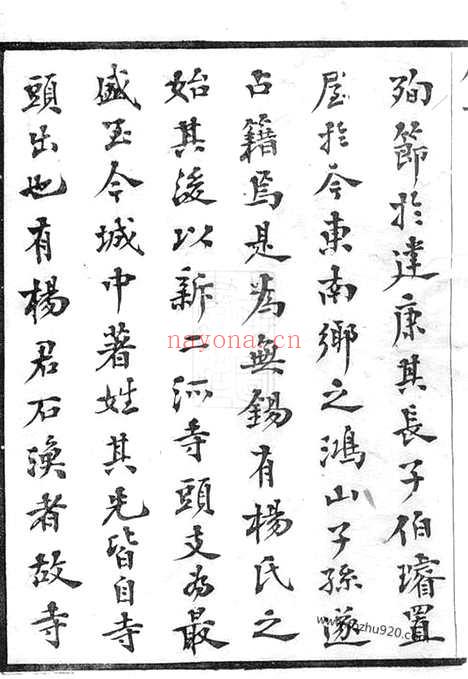 殉節於建康其長子伯璿置
屋於今東南鄉之鴻山子孫遂
占籍焉是為無錫有楊氏之
始其後以新二泒寺頭支為最
盛至今城中著姓其先皆自寺
頭出也有楊君石渙者故寺
nayonai.cn